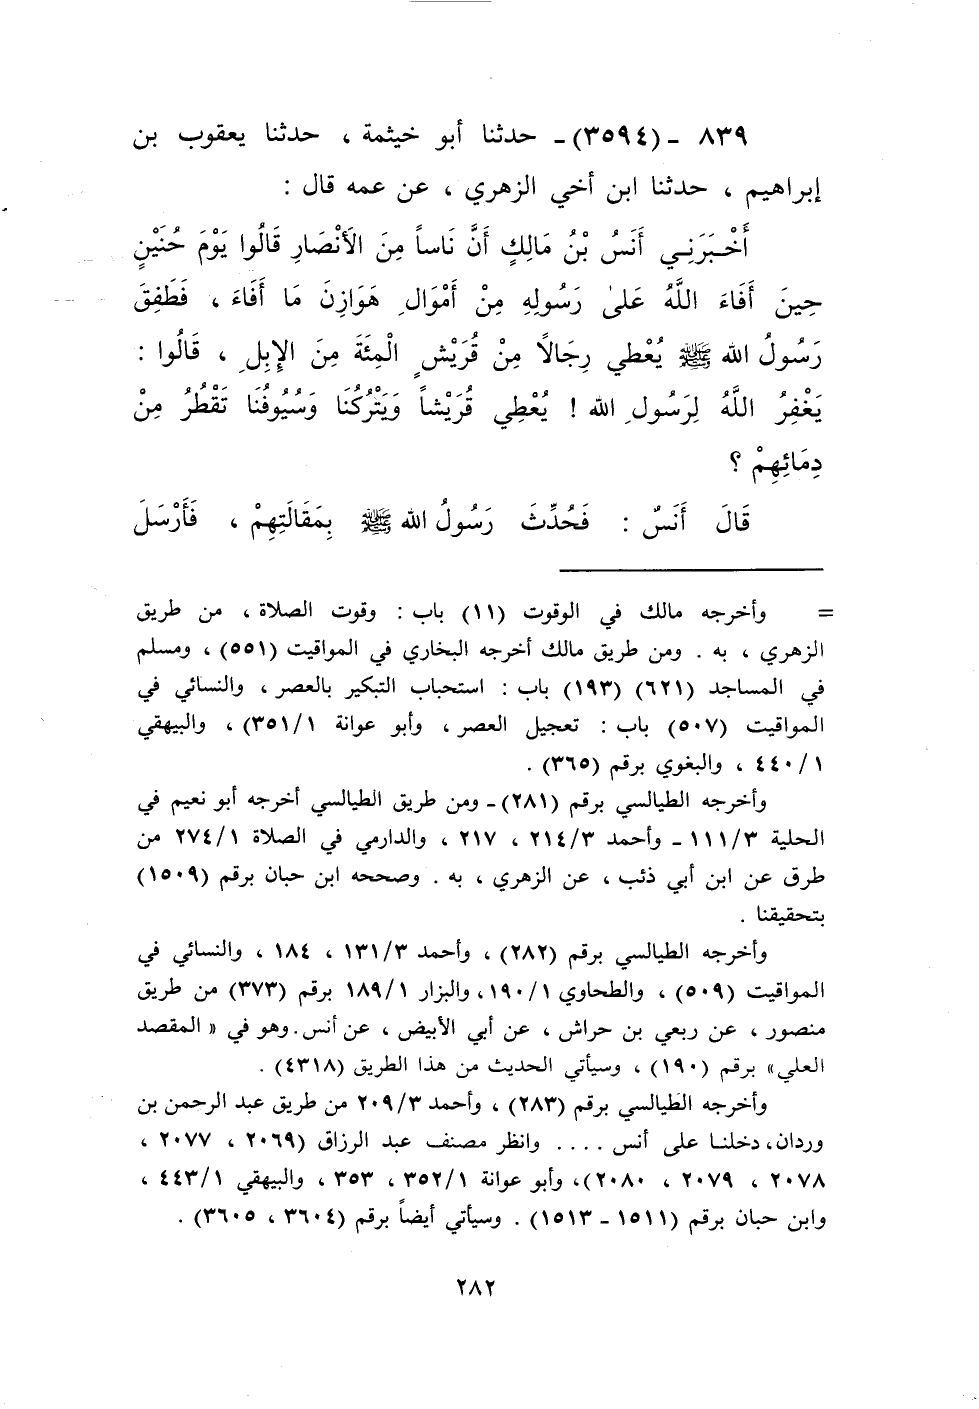 ٨٣٩ - (٣٥٩٤) - حدثنا أبو خيثمة ، حدثنا يعقوب بن
إبراهيم ، حدثنا ابن أخي الزهري ، عن عمه قال :
أَخْبَرَنِي أَنَسُ بْنُ مَالِكٍ أَنَّ نَاساً مِنَ الأَنْصَارِ قَالُوا يَوْمَ حُنَيْنٍ
حِينَ أَفَاءَ اللَّهُ عَلىٰ رَسُولِهِ مِنْ أَمْوَالِ هَوَازِنَ مَا أَفَاءَ ، فَطَفِقَ
رَسُولُ الله ﷺ يُعْطي رِجَالاً مِنْ قُرَيْشٍ الْمِئَةَ مِنَ الإِبِلِ ، قَالُوا :
يَغْفِرُ اللَّهُ لِرَسُولِ الله ! يُعْطِي قُرَيْشاً وَيَتْرُكُنَا وَسُيُوفُنَا تَقْطُرُ مِنْ
دِمَائِهِمْ ؟
قَالَ أَنَسٌ : فَحُدِّثَ رَسُولُ الله ﷺ بِمَقَالَتِهِمْ ، فَأَرْسَلَ
= وأخرجه مالك في الوقوت (١١) باب : وقوت الصلاة ، من طريق
الزهري ، به . ومن طريق مالك أخرجه البخاري في المواقيت (٥٥١) ، ومسلم
في المساجد (٦٢١) (١٩٣) باب : استحباب التبكير بالعصر ، والنسائي في
المواقيت (٥٠٧) باب : تعجيل العصر ، وأبو عوانة ٣٥١/١) ، والبيهقي
٤٤٠/١ ، والبغوي برقم (٣٦٥) .
وأخرجه الطيالسي برقم (٢٨١) - ومن طريق الطيالسي أخرجه أبو نعيم في
الحلية ١١١/٣ - وأحمد ٢١٤/٣ ، ٢١٧ ، والدارمي في الصلاة ٢٧٤/١ من
طرق عن ابن أبي ذئب ، عن الزهري ، به . وصححه ابن حبان برقم (١٥٠٩)
بتحقيقنا .
وأخرجه الطيالسي برقم (٢٨٢) ، وأحمد ١٣١/٣ ، ١٨٤ ، والنسائي في
المواقيت (٥٠٩) ، والطحاوي ١٩٠/١ ، والبزار ١٨٩/١ برقم (٣٧٣) من طريق
منصور ، عن ربعي بن حراش ، عن أبي الأبيض ، عن أنس . وهو في « المقصد
العلي» برقم (١٩٠) ، وسيأتي الحديث من هذا الطريق (٤٣١٨) .
وأخرجه الطيالسي برقم (٢٨٣) ، وأحمد ٢٠٩/٣ من طريق عبد الرحمن بن
وردان ، دخلنا على أنس .... وانظر مصنف عبد الرزاق (٢٠٦٩ ، ٢٠٧٧ ،
٢٠٧٨ ، ٢٠٧٩ ، ٢٠٨٠) ، وأبو عوانة ٣٥٢/١ ، ٣٥٣ ، والبيهقي ٤٤٣/١ ،
وابن حبان برقم (١٥١١ - ١٥١٣) . وسيأتي أيضاً برقم (٣٦٠٤ ، ٣٦٠٥) .
٢٨٢